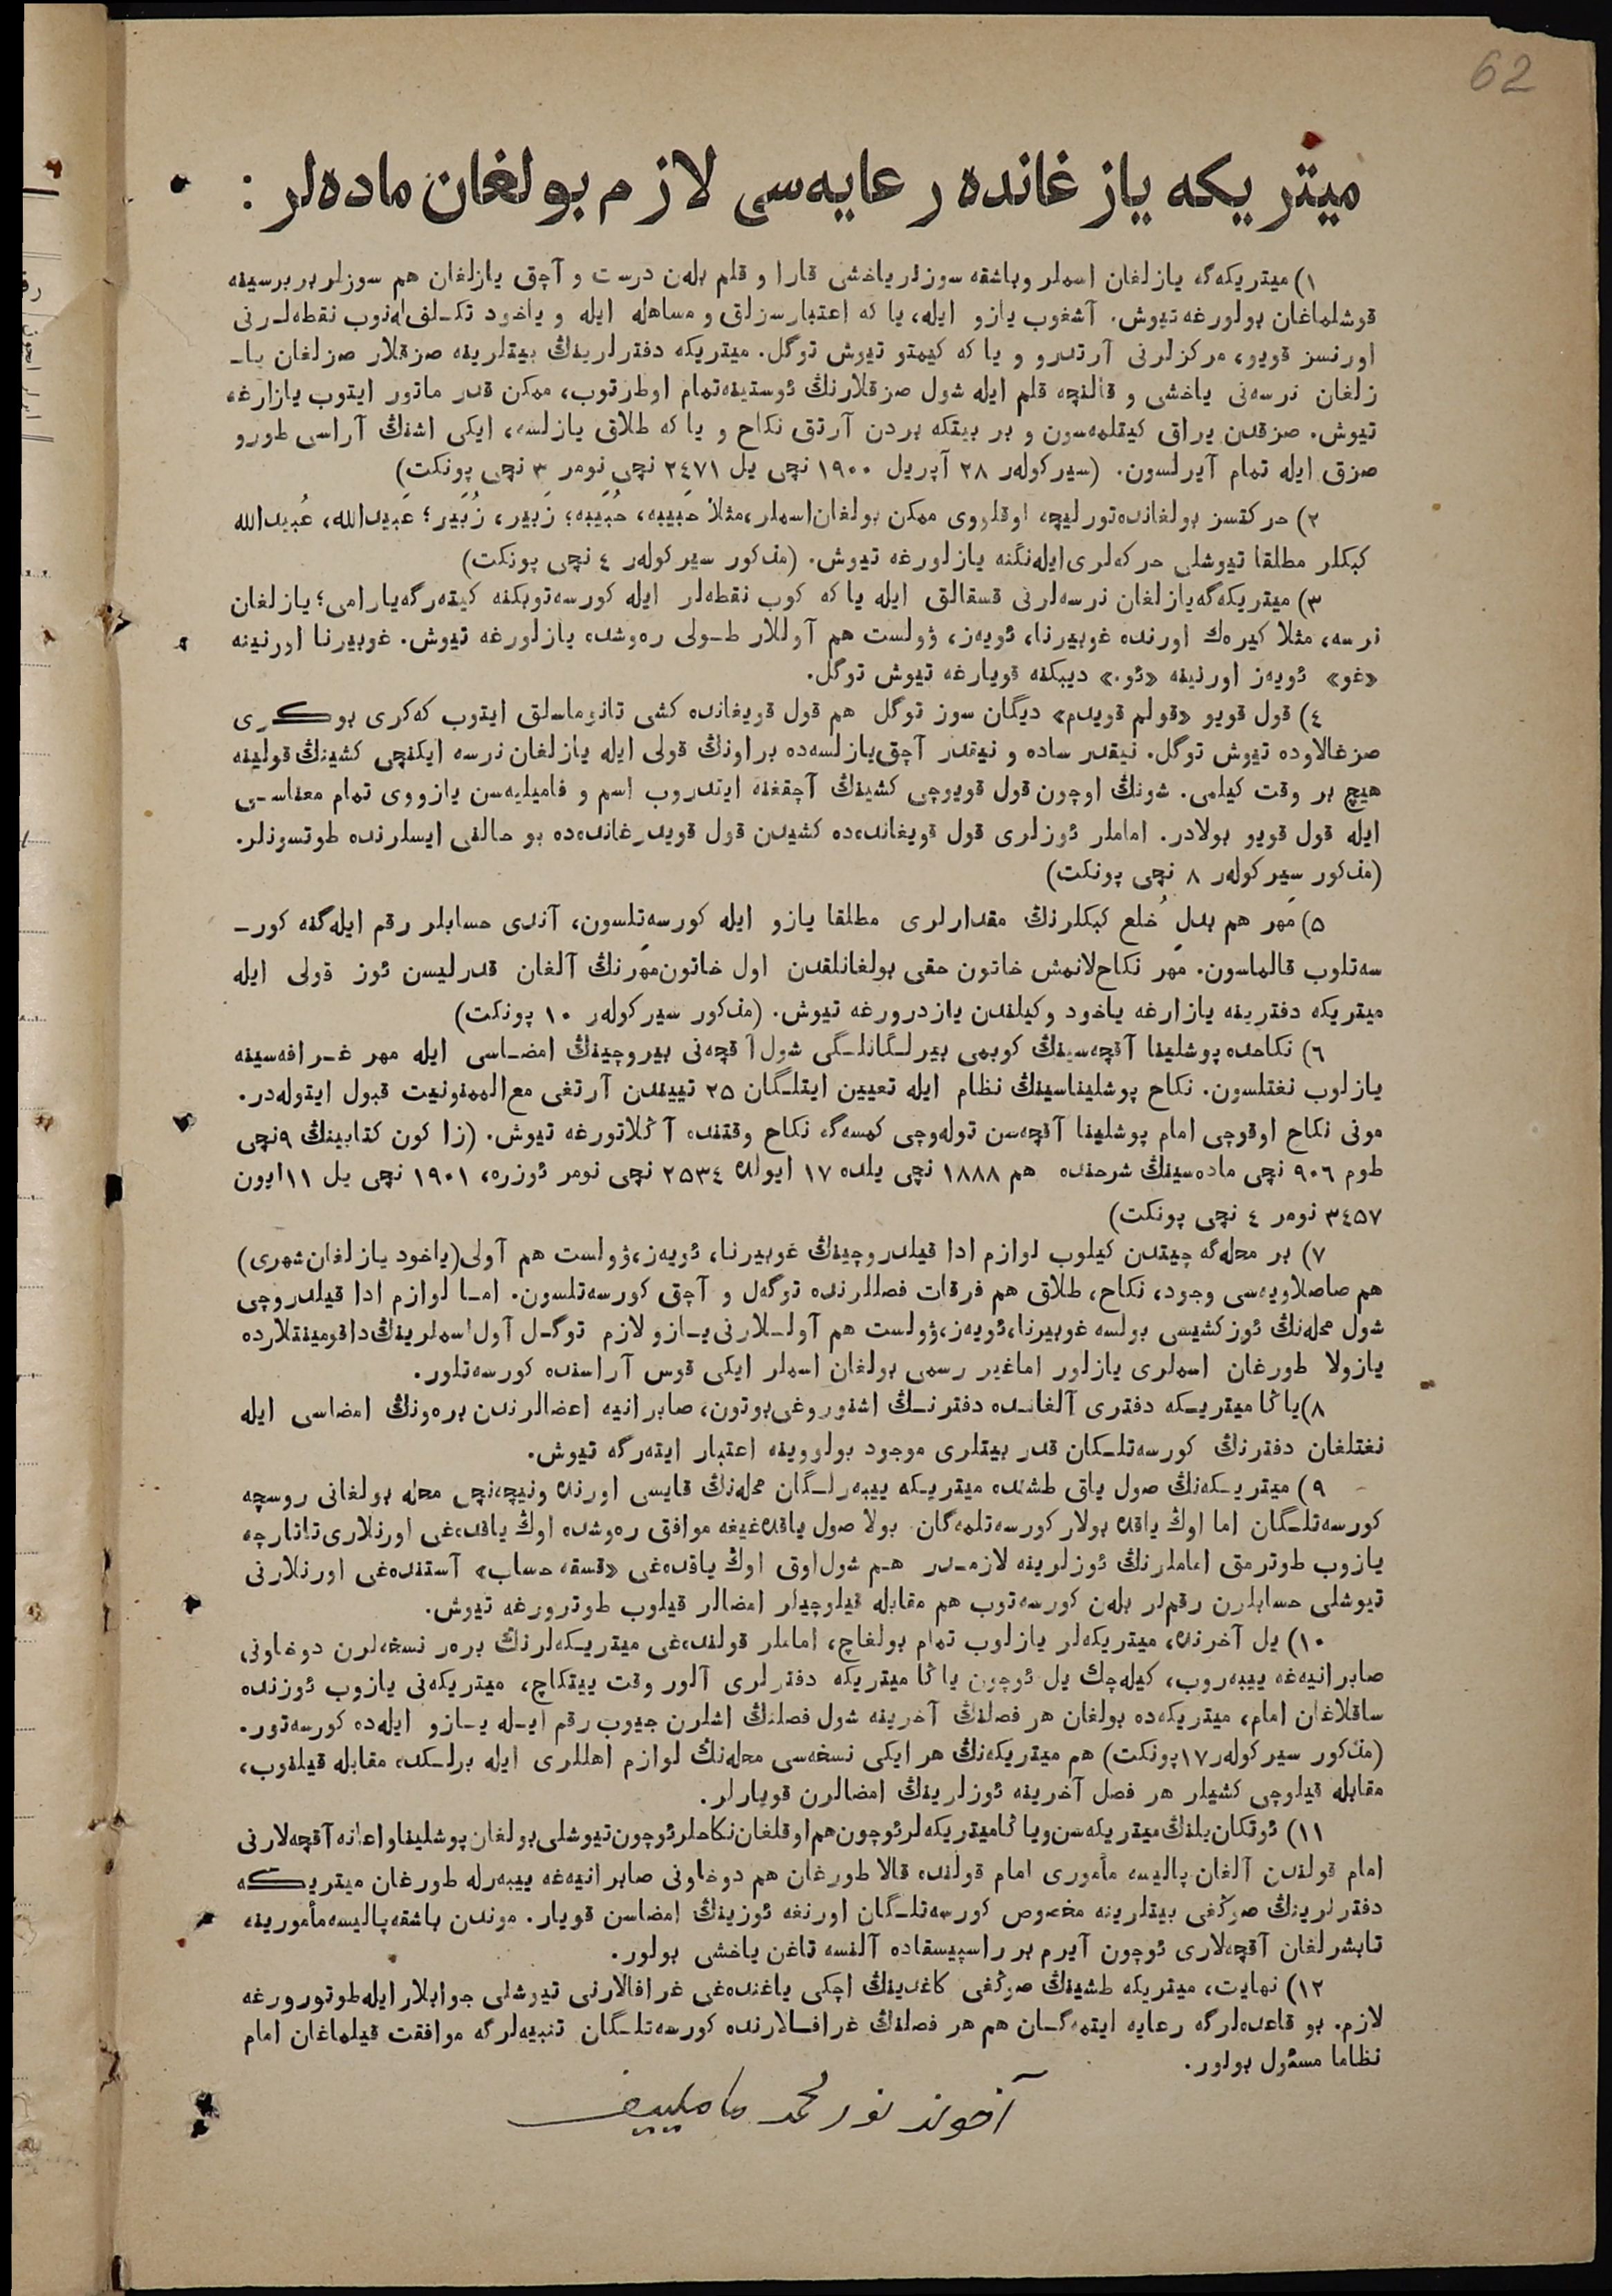 62
میتریکه یازغانده رعایه‌سی لازم بولغان ماده‌لر :
١) میتریکه‌گه یازلغان اسملر وباشقه سوزلر یاخشی قارا و قلم بله‌ن درست و آچق یازلغان هم سوزلر بربرسینه
قوشلماغان بولورغه تیوش. آشغوب یازو ایله، یا که اعتبارسزلق و مساهله ایله و یاخود تکـلف له‌نوب نقطه‌لـرنی
اورنسز قویو، مرکزلرنی آرتدرو و یا که کیمتو تیوش توگل. میتریکه دفترلرینڭ بیتلرینه صزقلار صزلغان یا–
زلغان نرسه‌نی یاخشی و قالنچه قلم ایله شول صزقلارنڭ ئوستینه‌تمام اوطرتوب، ممکن قدر ماتور ایتوب یازارغه
تیوش. صزقدن یراق کیتلمه‌سون و بر بیتکه بردن آرتق نکاح و یا که طلاق یازلسه، ایکی اشنڭ آراسی طورو
صزق ایله تمام آیرلسون. (سیرکوله‌ر ٢٨ آپریل ١٩٠٠ نچی یل ٢٤٧١ نچی نومر ٣ نچی پونکت)
٢) حرکتسز بولغانده‌تورلیچه اوقلووی ممکن بولغان‌اسملر،مثلاً حَبیبه، حُبَیبه؛ زَبیر، زُبَیر؛ عَبیدالله، عُبیدالله
کبکلر مطلقا تیوشلی حرکه‌لری‌ایله‌نگنه یازلورغه تیوش. (مذکور سیرکوله‌ر ٤ نچی پونکت)
٣) میتریکه‌گه‌یازلغان نرسه‌لرنی قسقالق ایله یا که کوب نقطه‌لر ایله کورسه‌توبکنه کیته‌رگه‌یارامی؛ یازلغان
نرسه، مثلا کیره‌ك اورنده غوبیرنا، ئویه‌ز، ۋولست هم آوللار طـولی ره‌وشده یازلورغه تیوش. غوبیرنا اورنینه
«غو» ئویه‌ز اورنینه «ئو.» دیبکنه قویارغه تیوش توگل.
٤) قول قویو «قولم قویدم» دیگان سوز توگل هم قول قویغانده کشی تانوماسلق ایتوب که‌کری بوکـری
صزغالاوده تیوش توگل. نیقدر ساده و نیقدر آچق‌یازلسه‌ده براونڭ قولی ایله یازلغان نرسه ایکنچی کشینڭ قولینه
هیچ بر وقت کیلمی. شونڭ اوچون قول قویوچی کشینڭ آچقغنه ایتدروب اسم و فامیلیه‌سن یازووی تمام معناسـی
ایله قول قویو بولادر. اماملر ئوزلری قول قویغانده‌ده کشیدن قول قویدرغانده‌ده بو حالنی ایسلرنده طوتسونلر.
(مذکور سیرکوله‌ر ٨ نچی پونکت)
٥) مَهر هم بدلِ خُلع کبکلرنڭ مقدارلری مطلقا یازو ایله کورسه‌تلسون، آندی حسابلر رقم ایله‌گنه کور–
سه‌تلوب قالماسون. مَهر نکاح‌لانمش خاتون حقی بولغانلقدن اول خاتون‌مهرنڭ آلغان قدرلیسن ئوز قولی ایله
میتریکه دفترینه یازارغه یاخود وکیلندن یازدرورغه تیوش. (مذکور سیرکوله‌ر ١٠ پونکت)
٦) نکاحده پوشلینا آقچه‌سینڭ کوبمی بیرلـگانلـگی شول آقچه‌نی بیروچینڭ امضـاسی ایله مهر غـرافه‌سینه
یازلوب نغتلسون. نکاح پوشلیناسینڭ نظام ایله تعیین ایتلـگان ٢٥ تییندن آرتغی مع‌الممنونیت قبول ایتوله‌در.
مونی نکاح اوقوچی امام پوشلینا آقچه‌سن توله‌وچی کمسه‌گه نکاح وقتنده آڭلاتورغه تیوش. (زا کون کتابینڭ ٩نچی
طوم ٩٠٦ نچی ماده‌سینڭ شرحنده هم ١٨٨٨ نچی یلده ١٧ ایولده ٢٥٣٤ نچی نومر ئوزره، ١٩٠١ نچی یل ١١ایون
٣٤٥٧ نومر ٤ نچی پونکت)
٧) بر محله‌گه چیتدن کیلوب لوازم ادا قیلدروچینڭ غوبیرنا، ئویه‌ز،ۋولست هم آولی(یاخود یازلغان‌شهری)
هم صاصلاویه‌سی وجود، نکاح، طلاق هم فرقات فصللرنده توگه‌ل و آچق کورسه‌تلسون. امـا لوازم ادا قیلدروچی
شول محله‌نڭ ئوز‌کشیسی بولسه غوبیرنا،ئویه‌ز،ۋولست هم آولـلارنی‌یـازو لازم توگـل آول‌اسملرینڭ‌داقومینتلارده
یازولا طورغان اسملری یازلور اماغیر رسمی بولغان اسملر ایکی قوس آراسنده کورسه‌تلور.
٨)یاڭا میتریـکه دفتری آلغانـده دفترنـڭ اشنوروغی‌بوتون، صابرانیه اعضالرندن بره‌ونڭ امضاسی ایله
نغتلغان دفترنڭ کورسه‌تلـکان قدر بیتلری موجود بولووینه اعتبار ایته‌رگه تیوش.
٩) میتریـکه‌نڭ صول یاق طشنده میتریـکه ییبه‌رلـگان محله‌نڭ قایسی اورنده ونیچه‌نچی محله بولغانی روسچه
کورسه‌تلـگان اما اوڭ یاقده بولار کورسه‌تلمه‌گان. بولا صول یاقده‌غیغه موافق ره‌وشده اوڭ یاقده‌غی اورنلاری‌تاتارچه
یازوب طوترمق اماملرنڭ ئوزلرینه لازمـدر هـم شول‌اوق اوڭ یاقده‌غی «قسقه حساب» آستنده‌غی اورنلارنی
تیوشلی حسابلرن رقم‌لر بله‌ن کورسه‌توب هم مقابله قیلوچیلر امضالر قیلوب طوترورغه تیوش.
١٠) یل آخرنده، میتریکه‌لر یازلوب تمام بولغاچ، اماملر قولنده‌غی میتریـکه‌لرنڭ بره‌ر نسخه‌لرن دوخاونی
صابرانیه‌غه ییبه‌روب، کیله‌چك یل ئوچون یاڭا میتریکه دفترلری آلور وقت ییتکاچ، میتریکه‌نی یازوب ئوزنده
ساقلاغان امام، میتریکه‌ده بولغان هر فصلنڭ آخرینه شول فصلنڭ اشلرن جیوب رقم ایـله یـازو ایله‌ده کورسه‌تور.
(مذکور سیرکوله‌ر١٧پونکت) هم میتریکه‌نڭ هر ایکی نسخه‌سی محله‌نڭ لوازم اهللری ایله برلـکده مقابله قیلنوب،
مقابله قیلوچی کشیلر هر فصل آخرینه ئوزلرینڭ امضالرن قویارلر.
١١) ئوتکان‌یلنڭ‌میتریکه‌سن‌ویاڭامیتریکه‌لرئوچون‌هم‌اوقلغان‌نکاحلرئوچون‌تیوشلی‌بولغان‌پوشلیناواعانه آقچه‌لارنی
امام قولندن آلغان پالیسه مأموری امام قولنده قالا طورغان هم دوخاونی صابرانیه‌غه ییبه‌رله طورغان میتریـکه
دفترلرینڭ صوڭغی بیتلرینه مخصوص کورسه‌تلـگان اورنغه ئوزینڭ امضاسن قویار. موندن باشقه‌پالیسه‌مأمورینه
تابشرلغان آقچه‌لاری ئوچون آیرم بر راسپیسقاده آلنسه تاغن یاخشی بولور.
١٢) نهایت، میتریکه طشینڭ صوڭغی کاغدینڭ اچکی یاغنده‌غی غرافالارنی تیوشلی جوابلارایله‌طوتورورغه
لازم. بو قاعده‌لرگه رعایه ایتمه‌گـان هم هر فصلنڭ غرافـالارنده کورسه‌تلـگان تنبیه‌لرگه موافقت قیلماغان امام
نظاما مسئول بولور.
آخوند نورمحمد ماملییف